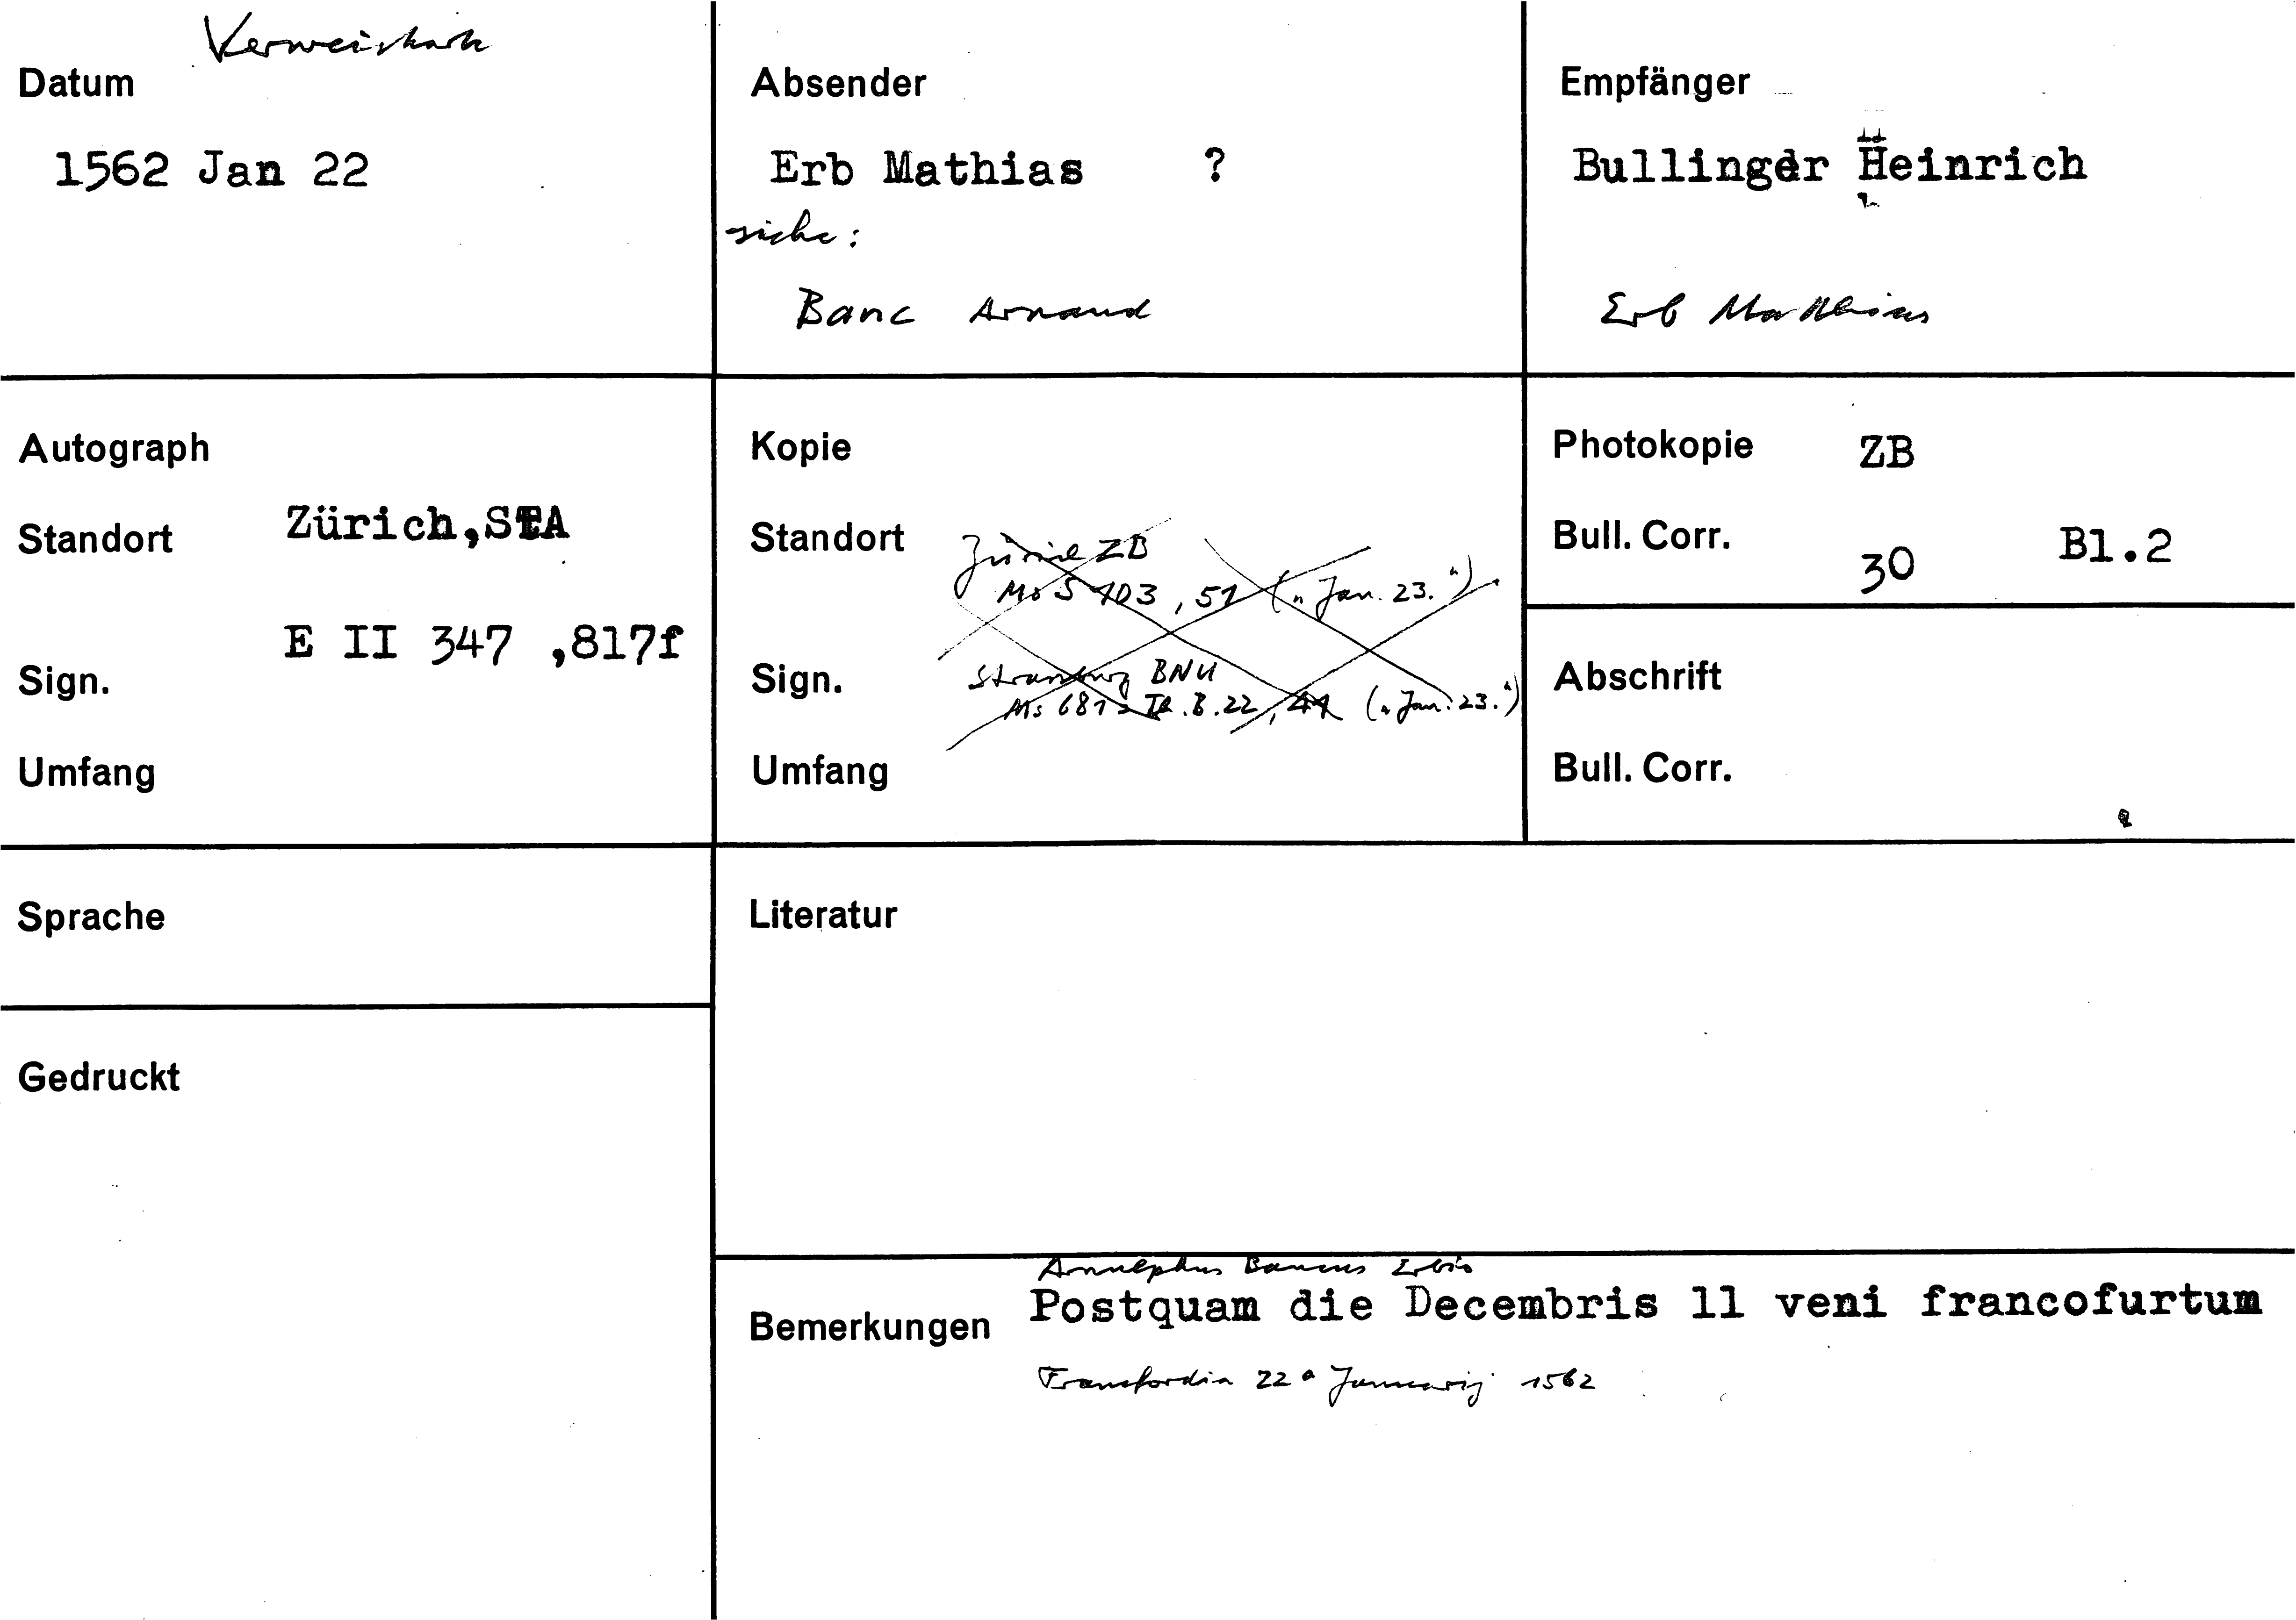 Verweiskarte
Datum
1562 Jan 22
Absender
Erb Mathias ?
siehe:
Banc Arnaud
Empfänger
Bullinger Heinrich
Erb Matthias
Autograph
Standort Zürich,StA
Sign. E II 347 ,817f
Umfang
Kopie
Standort Zürich ZB
Ms S 103, 51 („Jan. 23.“)
Sign. Strassburg BNU
Ms 681 = Th.B.22, 41 („Jan. 23.“)
Umfang
Photokopie ZB
Bull. Corr. 30 Bl.2
Abschrift
Bull. Corr.
Sprache
Literatur
Gedruckt
Bemerkungen
Bancus Erbio
Postquam die Decembris 11 veni francofurtum
Francfordia 22a Januarij 1562